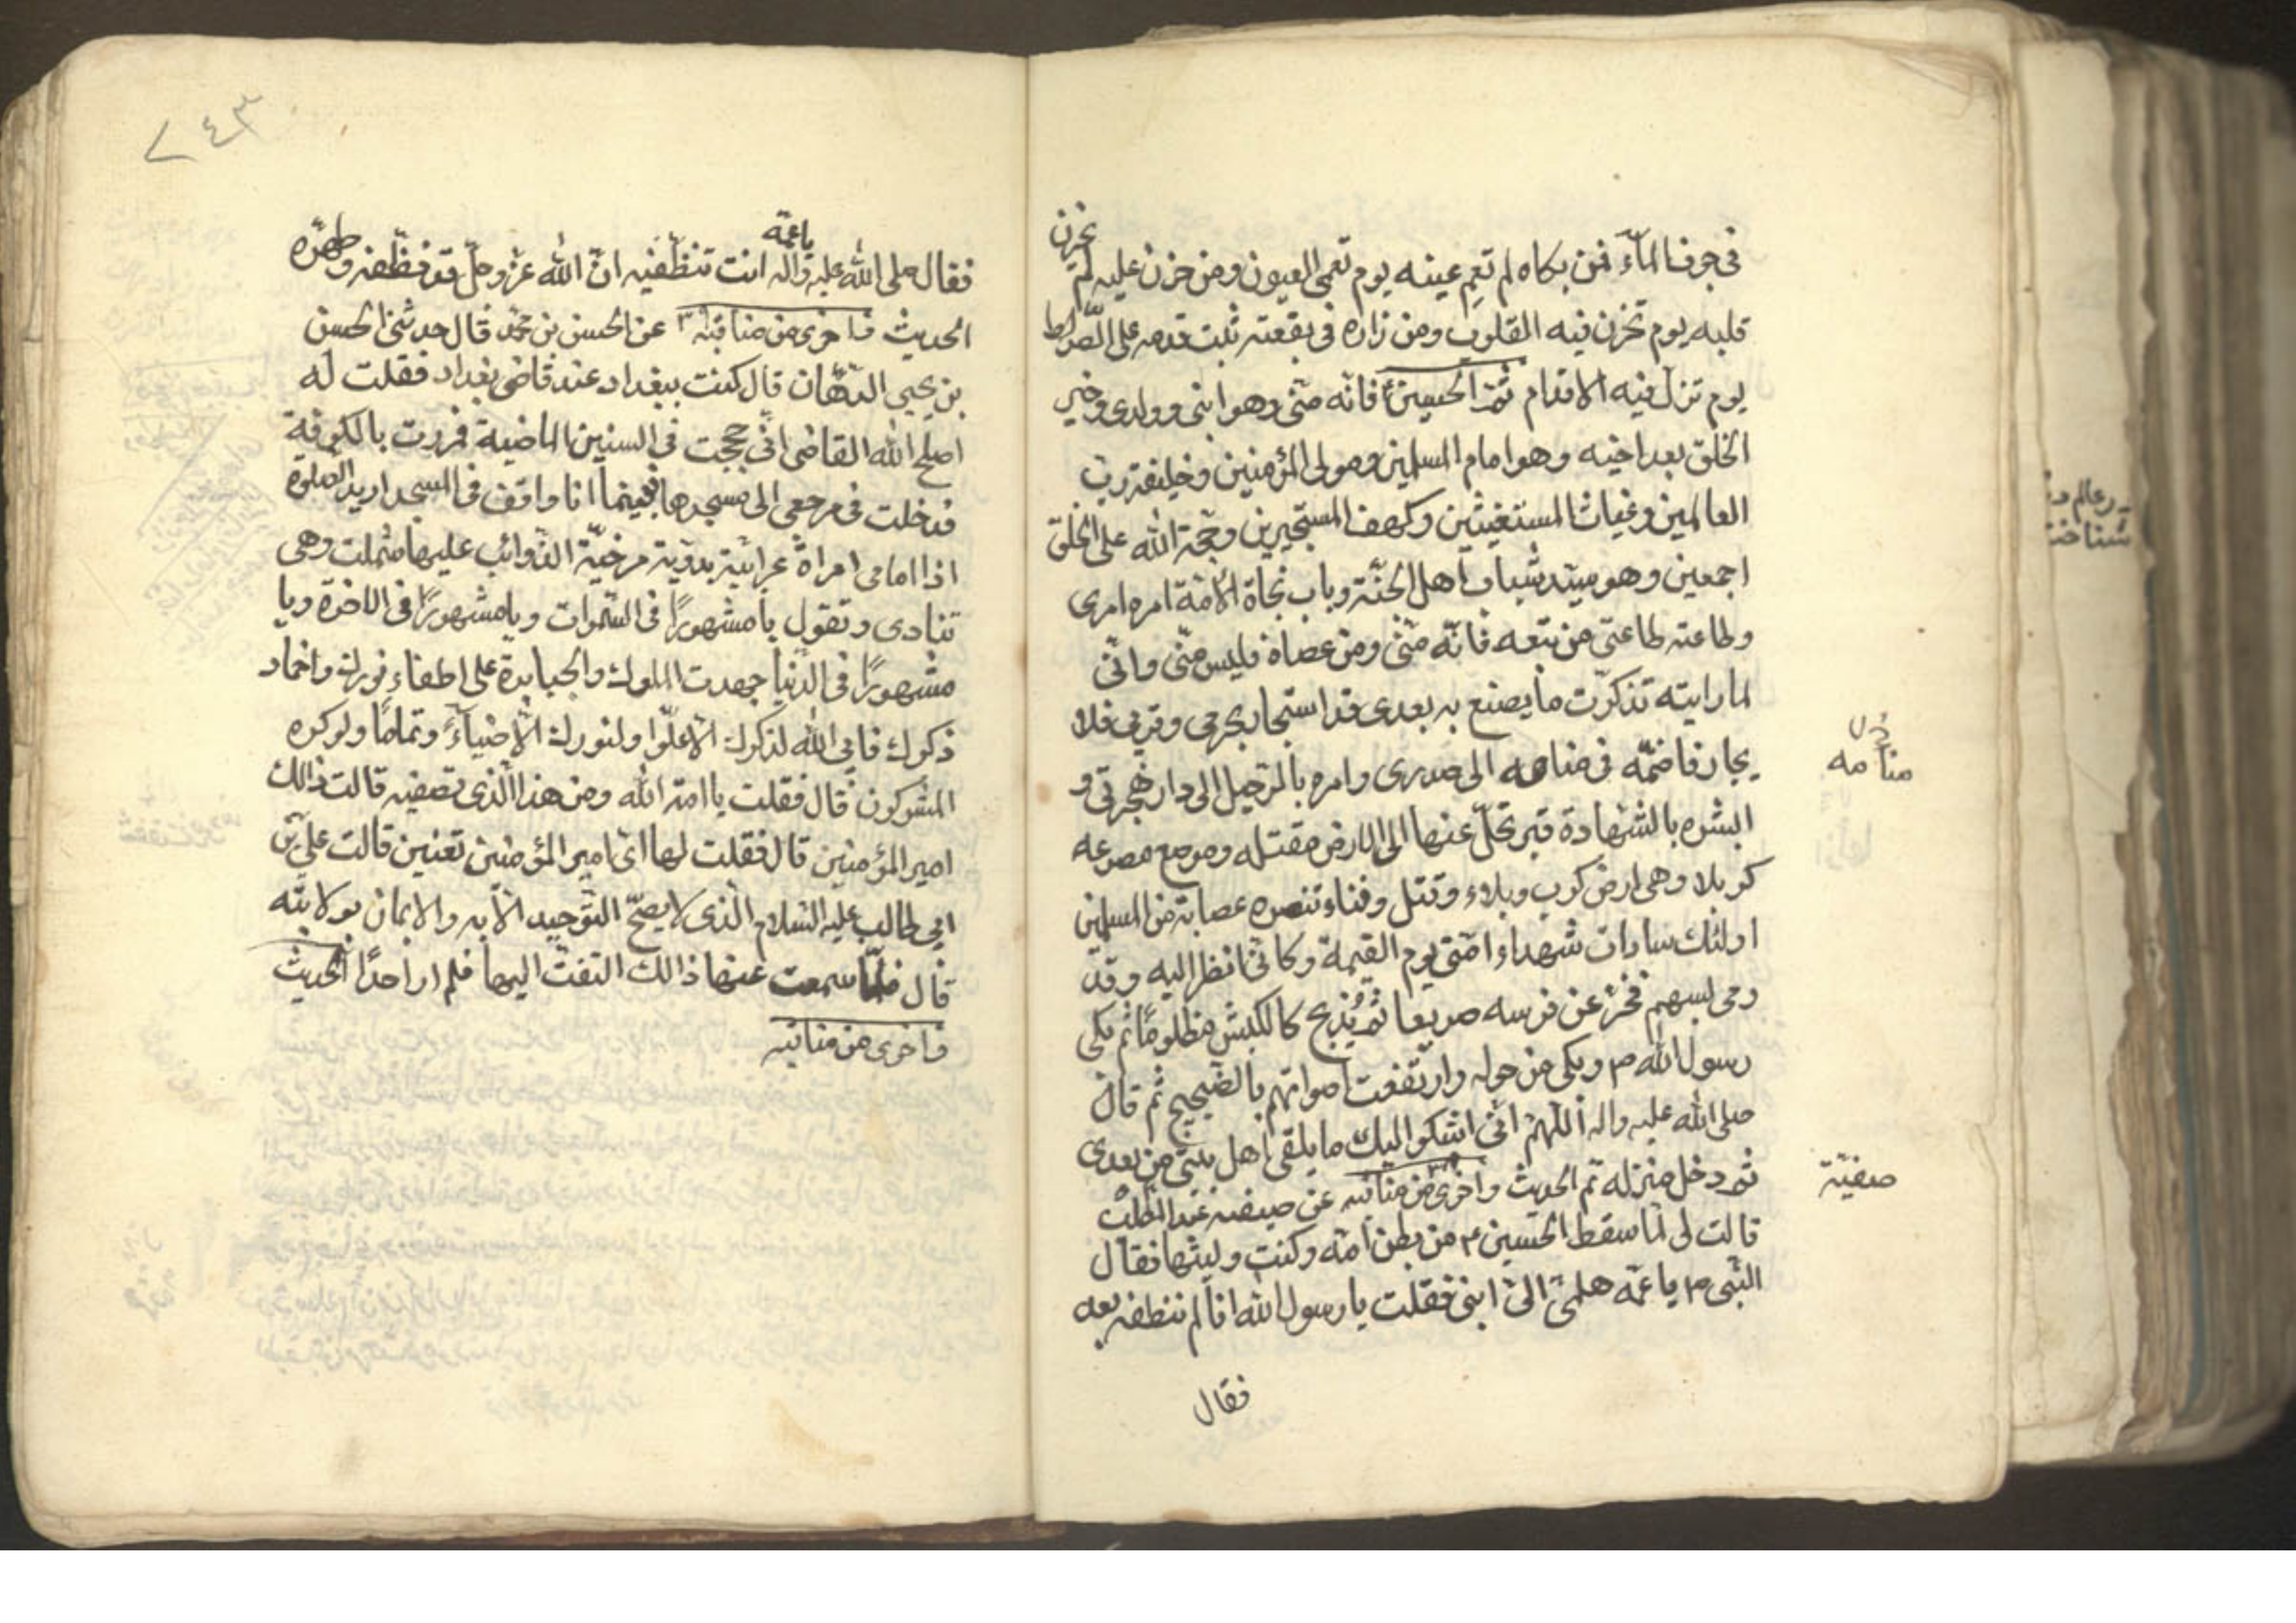 في جوف الماء فمن بكاه لم تعم عينه يوم تعمى العيون ومن حزن عليه لم يحزن
قلبه يوم تحزن فيه القلوب ومن زاره في بقعته ثبت قدمه على الصراط
يوم تزل فيه الاقدام ثم الحسين ع فانه منّي وهو ابني وولدي وخير
الخلق بعد اخيه وهو امام المسلمين ومولى المؤمنين وخليفة رب
العالمين وغياث المستغيثين وكهف المستجيرين وحجة الله على الخلق
اجمعين وهو سيّد شباب اهل الجنّة وباب نجاة الامّة امره امري
وطاعته طاعتي من تبعه فانّه منّي ومن عصاه فليس منّي وانّي
لما رايته تذكرت ما يصنع به بعدي قد استجار بحرمي وقربي فلا
يجار فاضمّه في منامه الى صدري وامره بالرحيل الى دار هجرتي و
ابشره بالشهادة فيرتحل عنها الى الارض مقتله وموضع مصرعه
كربلا وهي ارض كرب وبلاء وقتل وفناء تنصره عصابة من المسلمين
اولئك سادات شهداء امّتي يوم القيمة وكانّي انظر اليه وقد
رمى بسهم فخرّ عن فرسه صريعا ثم يُذبح كالكبش مظلومًا ثم بكى
رسول الله ص وبكى من حوله وارتفعت اصواتهم بالضجيج ثم قال
صلى الله عليه واله اللّهم انّي اشكوا اليك ما يلقى اهل بيتي من بعدي
ثم دخل منزله تم الحديث واخرى من مناقبه عن صفيه عبد المطلب
قالت لي لمّا سقط الحسين ع من بطن امّه وكنت وليتها فقال
النّبي ص يا عمّه هلمّي اليّ ابني فقلت يا رسول الله انا لم ننظفه بعد
فقال
منامه
صفيّة
٢٤٣
فقال صلى الله عليه واله يا عمّه انت تنظّفيه انّ الله عزّ وجلّ قد نظّفه وطهّره
الحديث واخرى من مناقبه عن الحسن بن محمّد قال حدثني الحسن
بن يحيى الدهّان قال كنت ببغداد عند قاضي بغداد فقلت له
اصلح الله القاضي انّي حججت في السنين الماضية فمررت بالكوفة
فدخلت في مرجعي الى مسجدها فبينما انا واقف في المسجد اريد الصلوة
اذا امامي امراة عرابيّة بدويّة مرخيّة الذوائب عليها شملت وهي
تنادى وتقول يا مشهورًا في السّموات ويا مشهورًا في الاخرة ويا
مشهورًا في الدّنيا جهدت الملوك والجبابرة على اطفاء نورك واخماد
ذكرك فابي الله لذكرك الّا علّوا ولنورك الّا ضياءً وتمامًا ولو كره
المشركون قال فقلت يا امة الله ومن هذا الّذي تصفيه قالت ذالك
امير المؤمنين قال فقلت لها اي امير المؤمنين تعنين قالت عليّ بن
ابي طالب عليه السّلام الّذي لا يصحّ التّوحيد الّا به والايمان بولايته
قال فلمّا سمعت عنها ذالك التفتّ اليها فلم ار احدًا الحديث
واخرى من مناقبه